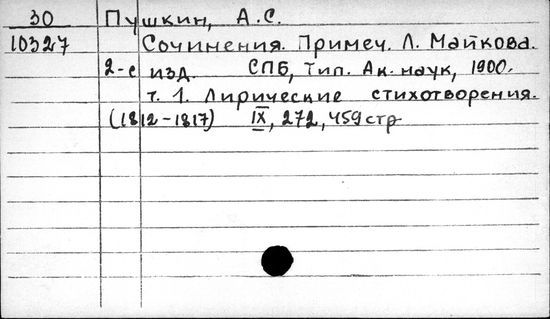 30 Пушкин, А.С.
10327 Сочинения. Примеч. Л. Майкова.
2-е изд. СПБ, Тип. Ак. наук, 1900.
т. 1. Лирические стихотворения.
(1812-1817) IX, 272, 459 стр